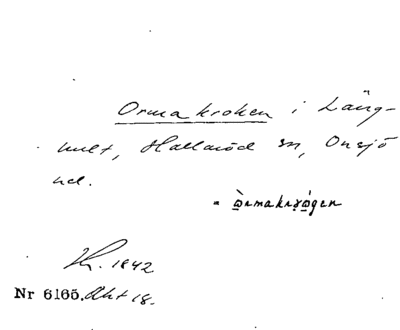 Ormakroken i Läng-
hult, Hallaröd sn, Onsjö
hd.
òrmakrógen
1842
Nr 6165. Akt 18.